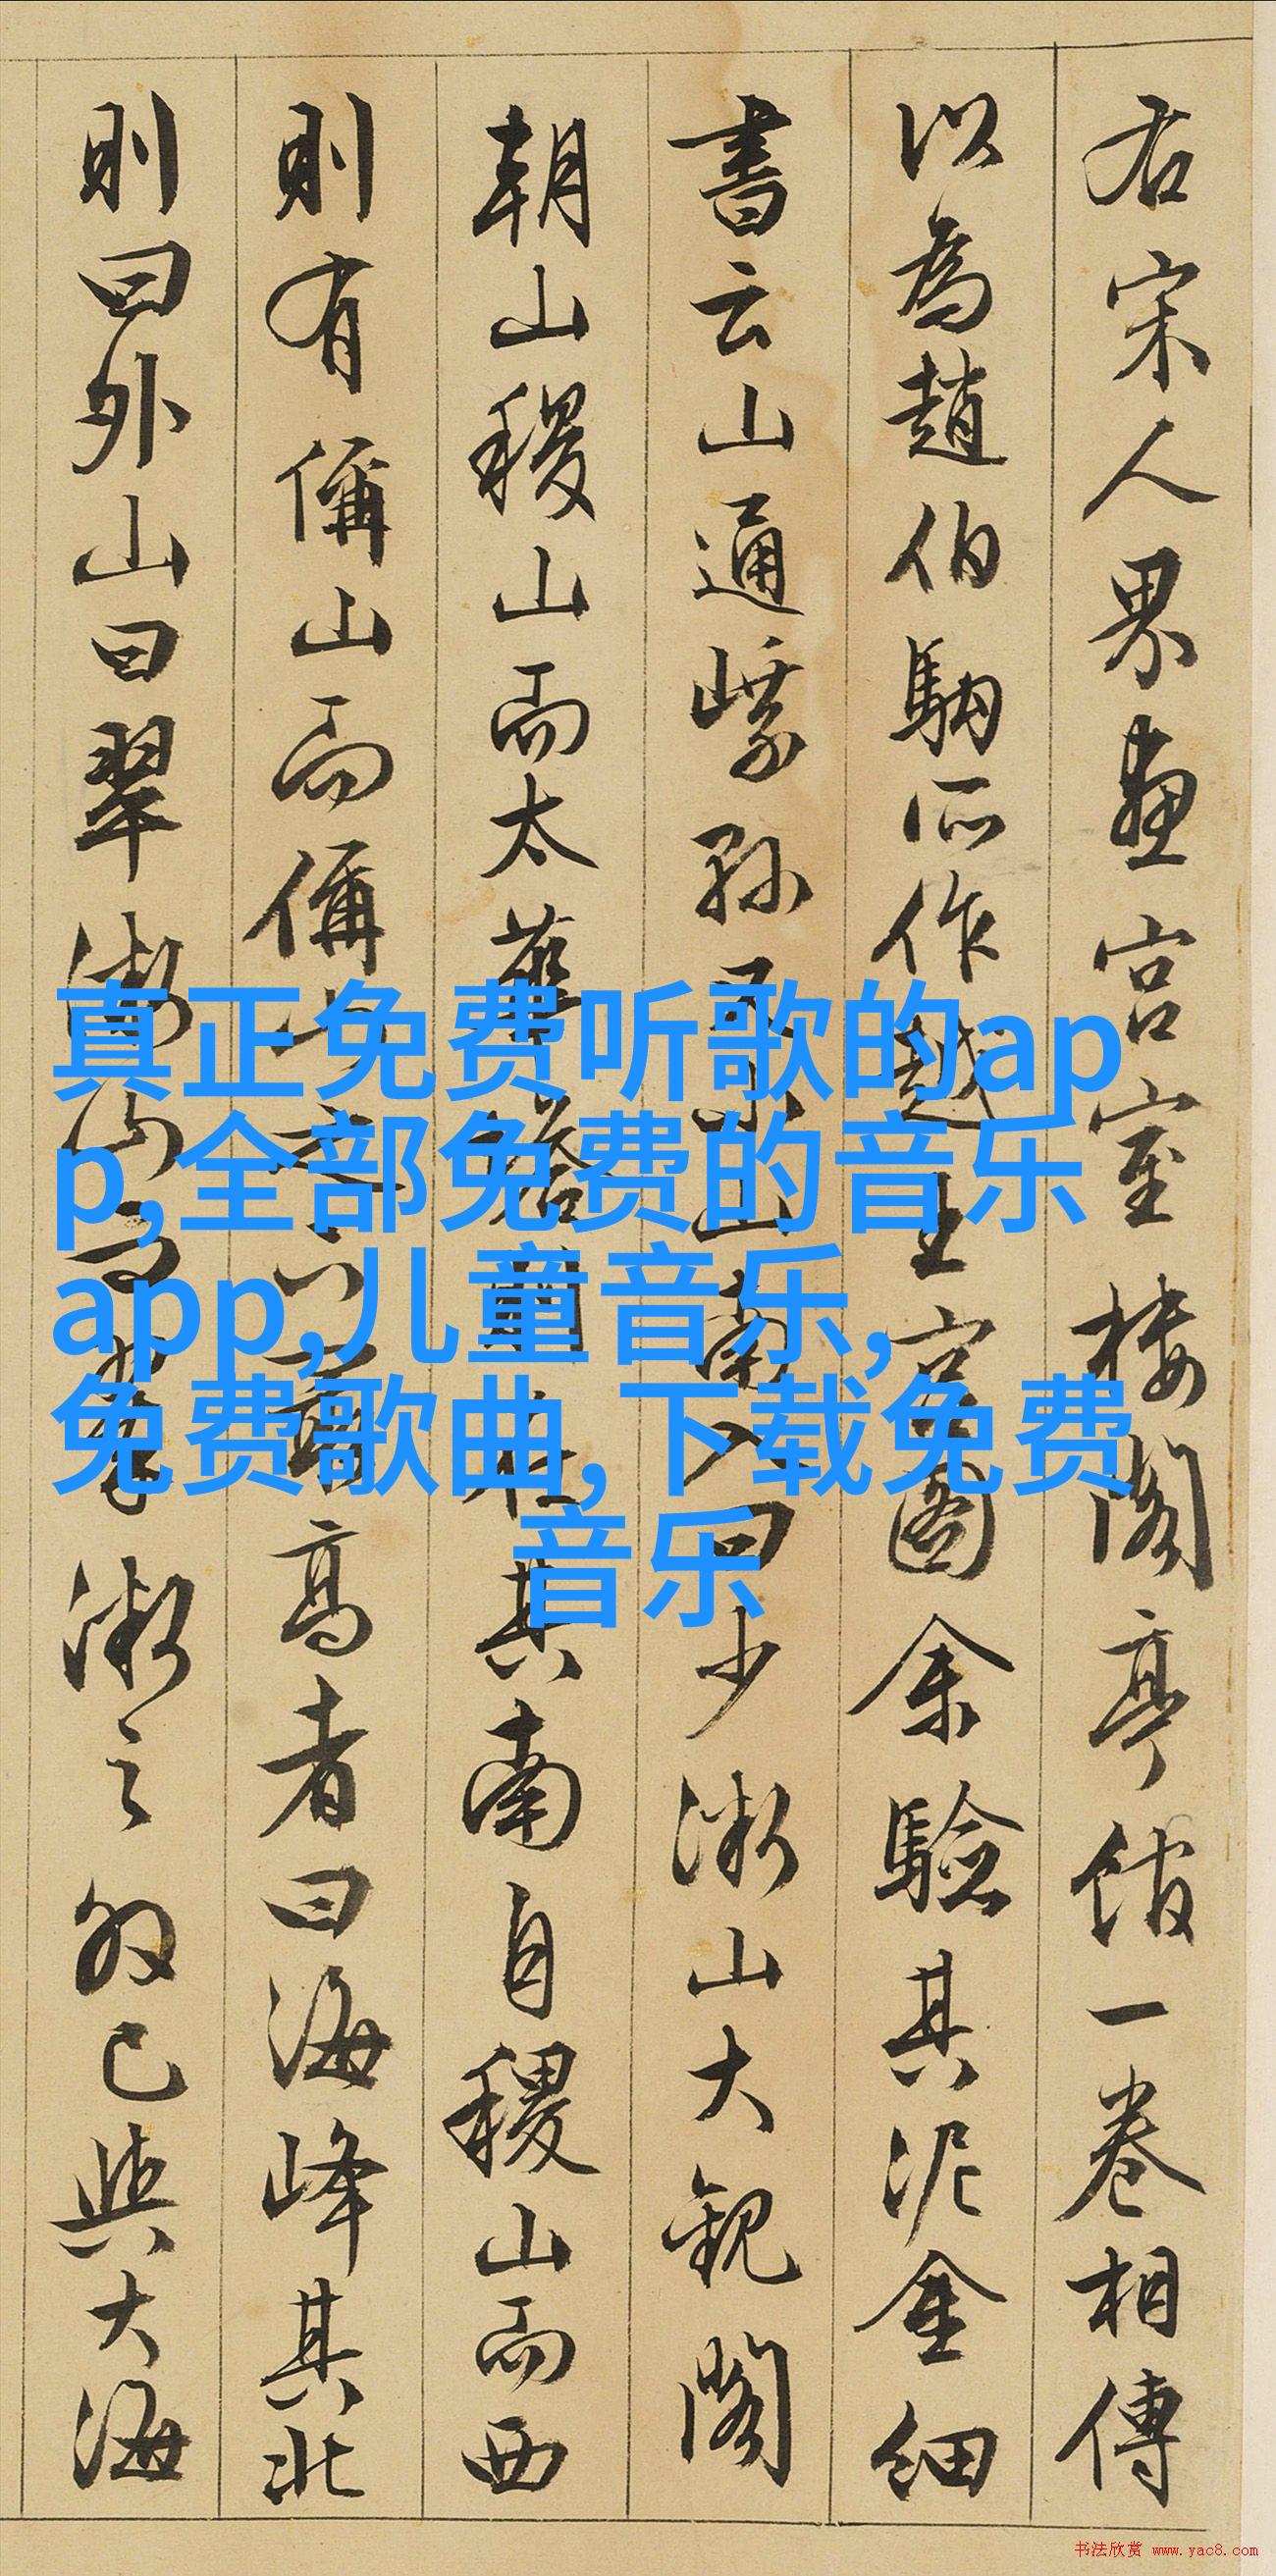 右宋人界畫宮室樓閣亭館一卷相傳
以為趙伯駒所作越王宮圖余驗其泥金細
書云山通孫山南曰少山大觀閣
朝山稷山而太其南自稷山而西
則有偁山而偁高者曰海峰其北
則曰外山曰翠之外已與大海
真正免费听歌的ap
p,全部免费的音乐
app,儿童音乐,
免费歌曲,下载免费
音乐
书法欣赏 www.yac8.com